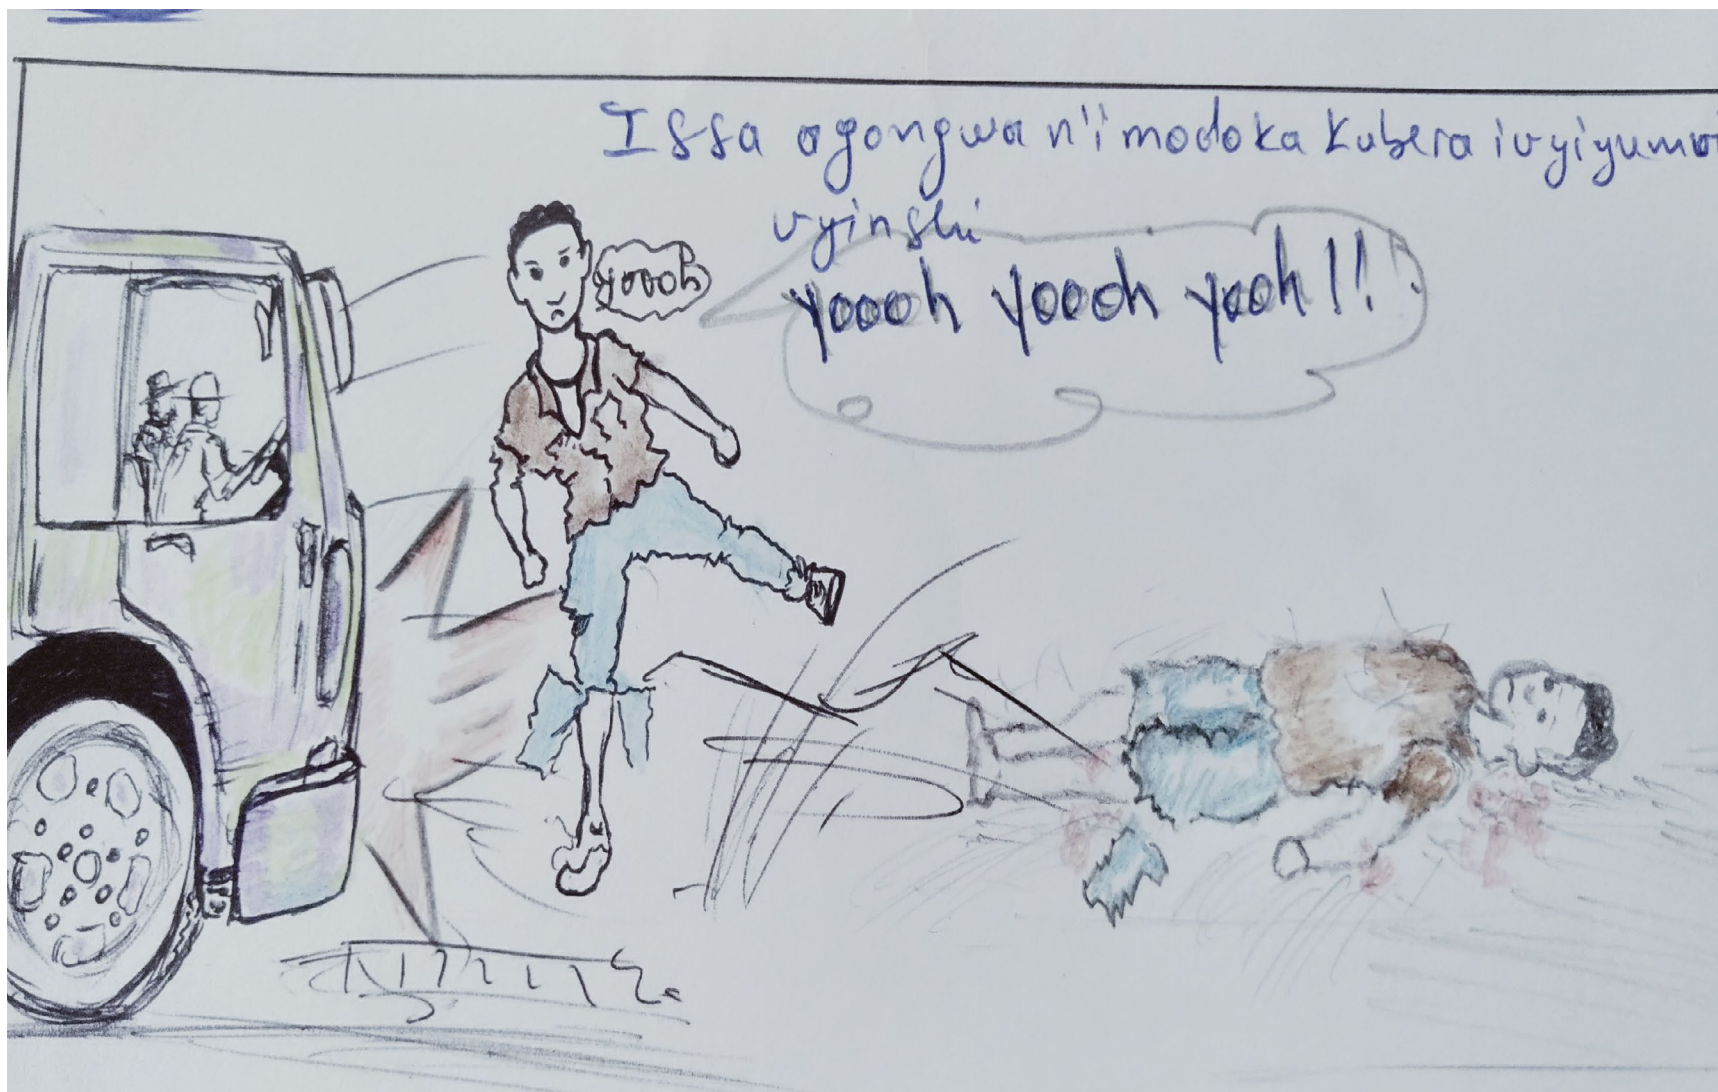 Issa agongwa n'imodoka Kubera ivyiyumvi
vyinshi
yoooh
yoooh yoooh yooh!!!